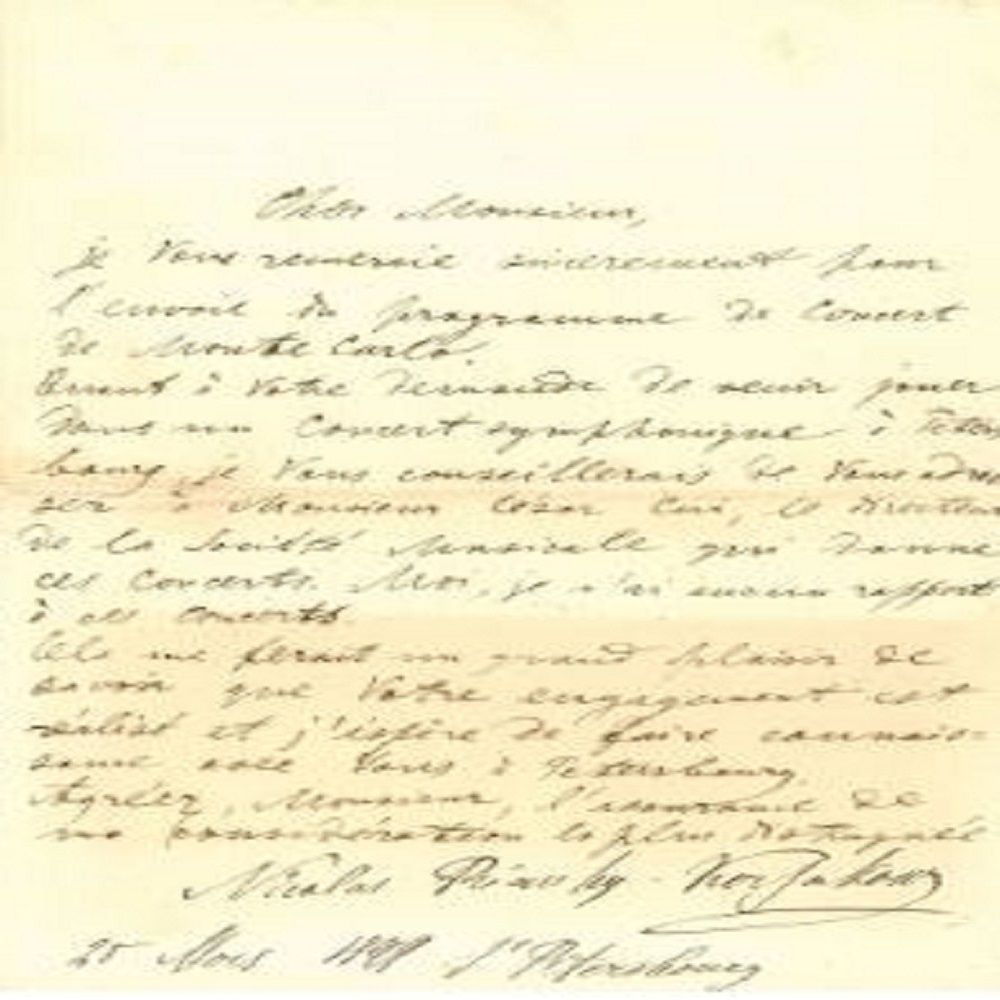 Cher Monsieur,
je Vous remercie sincerement pour
l'envoie du programme de Concert
de Monte Carlo.
à Votre demande de venir jouer
dans un Concert symphonique à Peters
bourg, je Vous conseillerais de Vous adres
ser à Monsieur César Cui, le directeur
de la Société Musicale qui donne
ces Concerts. Moi, je n'ai aucun rapport
à ces concerts.
Cela me ferait un grand plaisir de
savoir que Votre engagement est
réalisé et j'éspère de faire connais-
sance avec Vous à Petersbourg
Agréez, Monsieur, l'assurance de
ma considération la plus distinguée
Nicolas Rimsky-Korsakow
25 Mars St Petersbourg